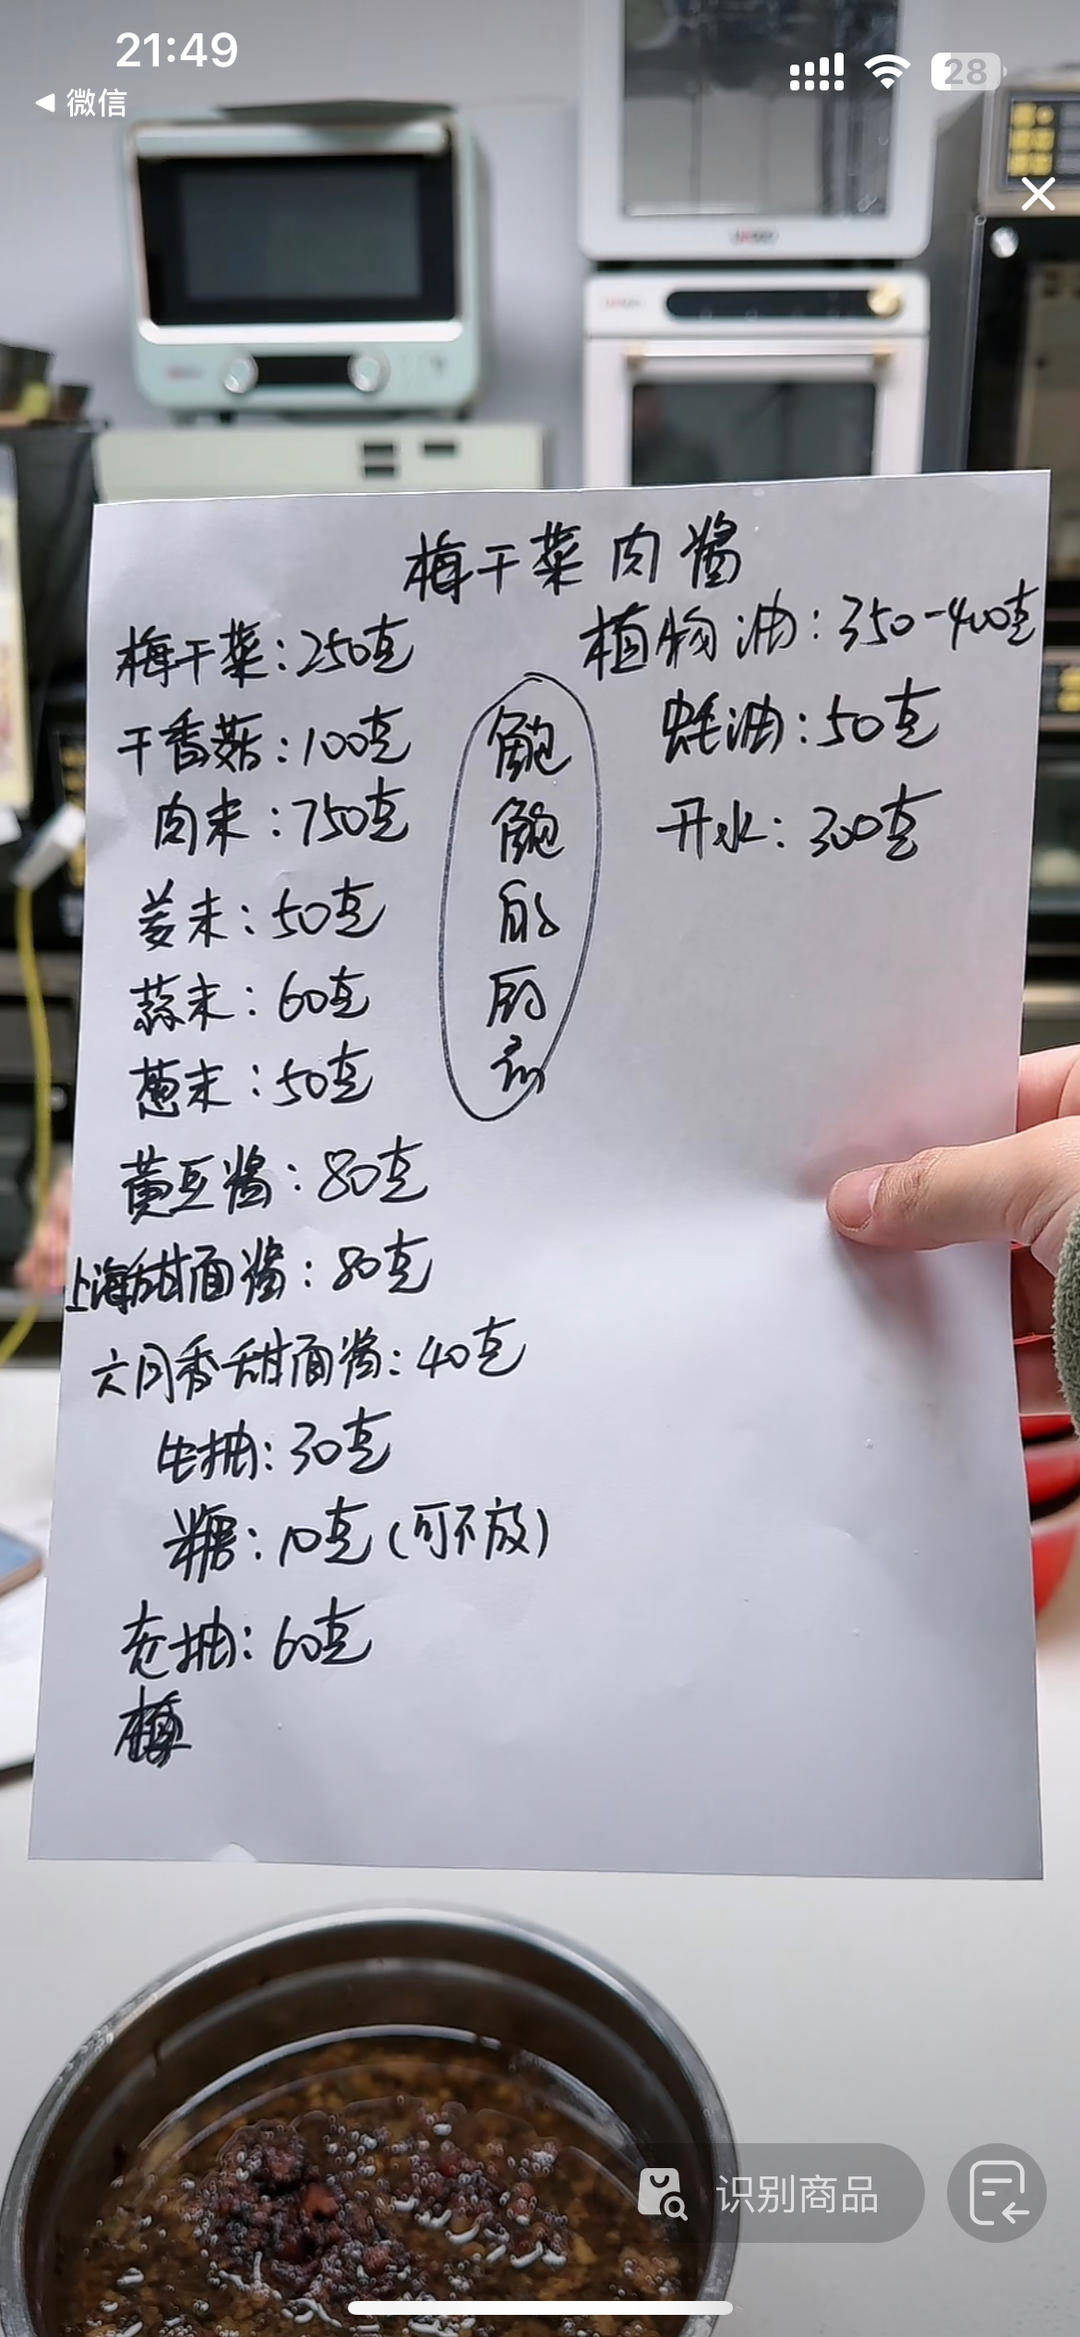 21:49
28
微信
梅干菜肉酱
梅干菜:250克
干香菇:100克
肉末:750克
姜末:50克
蒜末:60克
葱末:50克
黄豆酱:80克
上海甜面酱:80克
六月香甜面酱:40克
生抽:30克
糖:10克(可不放)
老抽:60克
植物油:350-400克
蚝油:50克
开水:300克
鲍
鲍
的
厨
识别商品